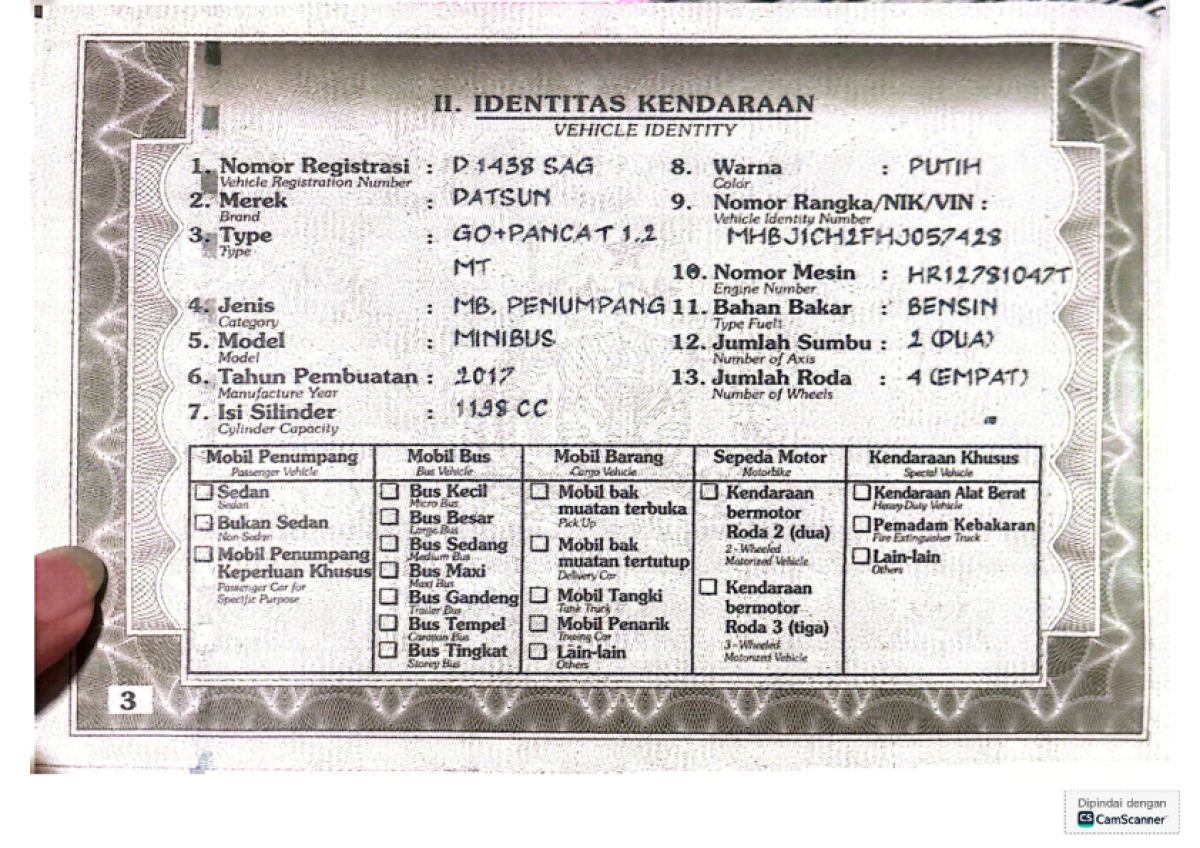 II. IDENTITAS KENDARAAN
VEHICLE IDENTITY
1. Nomor Registrasi : D 1438 SAG
Vehicle Registration Number
2. Merek : DATSUN
Brand
3. Type : GO+PANCAT 1.2
Type
MT
4. Jenis : MB. PENUMPANG
Category
5. Model : MINIBUS
Model
6. Tahun Pembuatan : 2017
Manufacture Year
7. Isi Silinder : 1198 CC
Cylinder Capacity
8. Warna : PUTIH
Color
9. Nomor Rangka/NIK/VIN :
Vehicle Identity Number
MHBJ1CH2FHJ057428
10. Nomor Mesin : HR12781047T
Engine Number
11. Bahan Bakar : BENSIN
Type Fuelt
12. Jumlah Sumbu : 2 (DUA)
Number of Axis
13. Jumlah Roda : 4 (EMPAT)
Number of Wheels
Mobil Penumpang
Passenger Vehicle
Sedan
Sedan
Bukan Sedan
Non-Sedan
Mobil Penumpang
Keperluan Khusus
Passenger Car for
Specific Purpose
Mobil Bus
Bus Vehicle
Bus Kecil
Micro Bus
Bus Besar
Large Bus
Bus Sedang
Medium Bus
Bus Maxi
Maxi Bus
Bus Gandeng
Trailer Bus
Bus Tempel
Caravan Bus
Bus Tingkat
Storey Bus
Mobil Barang
Cargo Vehicle
Mobil bak
muatan terbuka
Pick Up
Mobil bak
muatan tertutup
Delivery Car
Mobil Tangki
Tank Truck
Mobil Penarik
Towing Car
Lain-lain
Others
Sepeda Motor
Motorbike
Kendaraan
bermotor
Roda 2 (dua)
2 - Wheeled
Motorized Vehicle
Kendaraan
bermotor
Roda 3 (tiga)
3 - Wheeled
Motorized Vehicle
Kendaraan Khusus
Special Vehicle
Kendaraan Alat Berat
Heavy Duty Vehicle
Pemadam Kebakaran
Fire Extinguisher Truck
Lain-lain
Others
3
Dipindai dengan
CS CamScanner